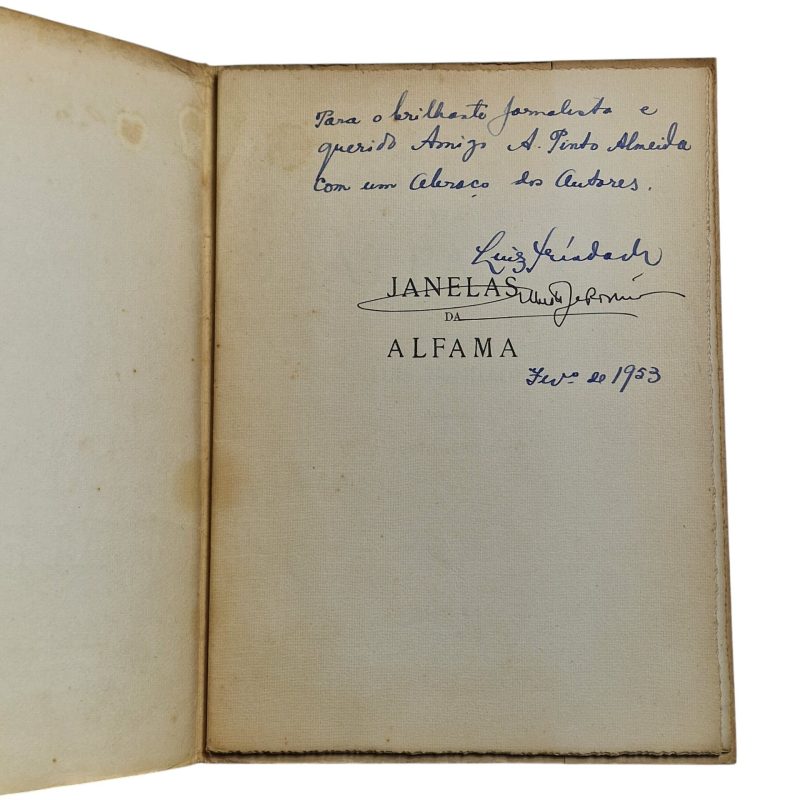 Para o brilhante jornalista e
querido Amigo A. Pinto Almeida
com um abraço dos Autores.
Luiz Trindade
JANELAS
DA
ALFAMA
Fevº de 1953